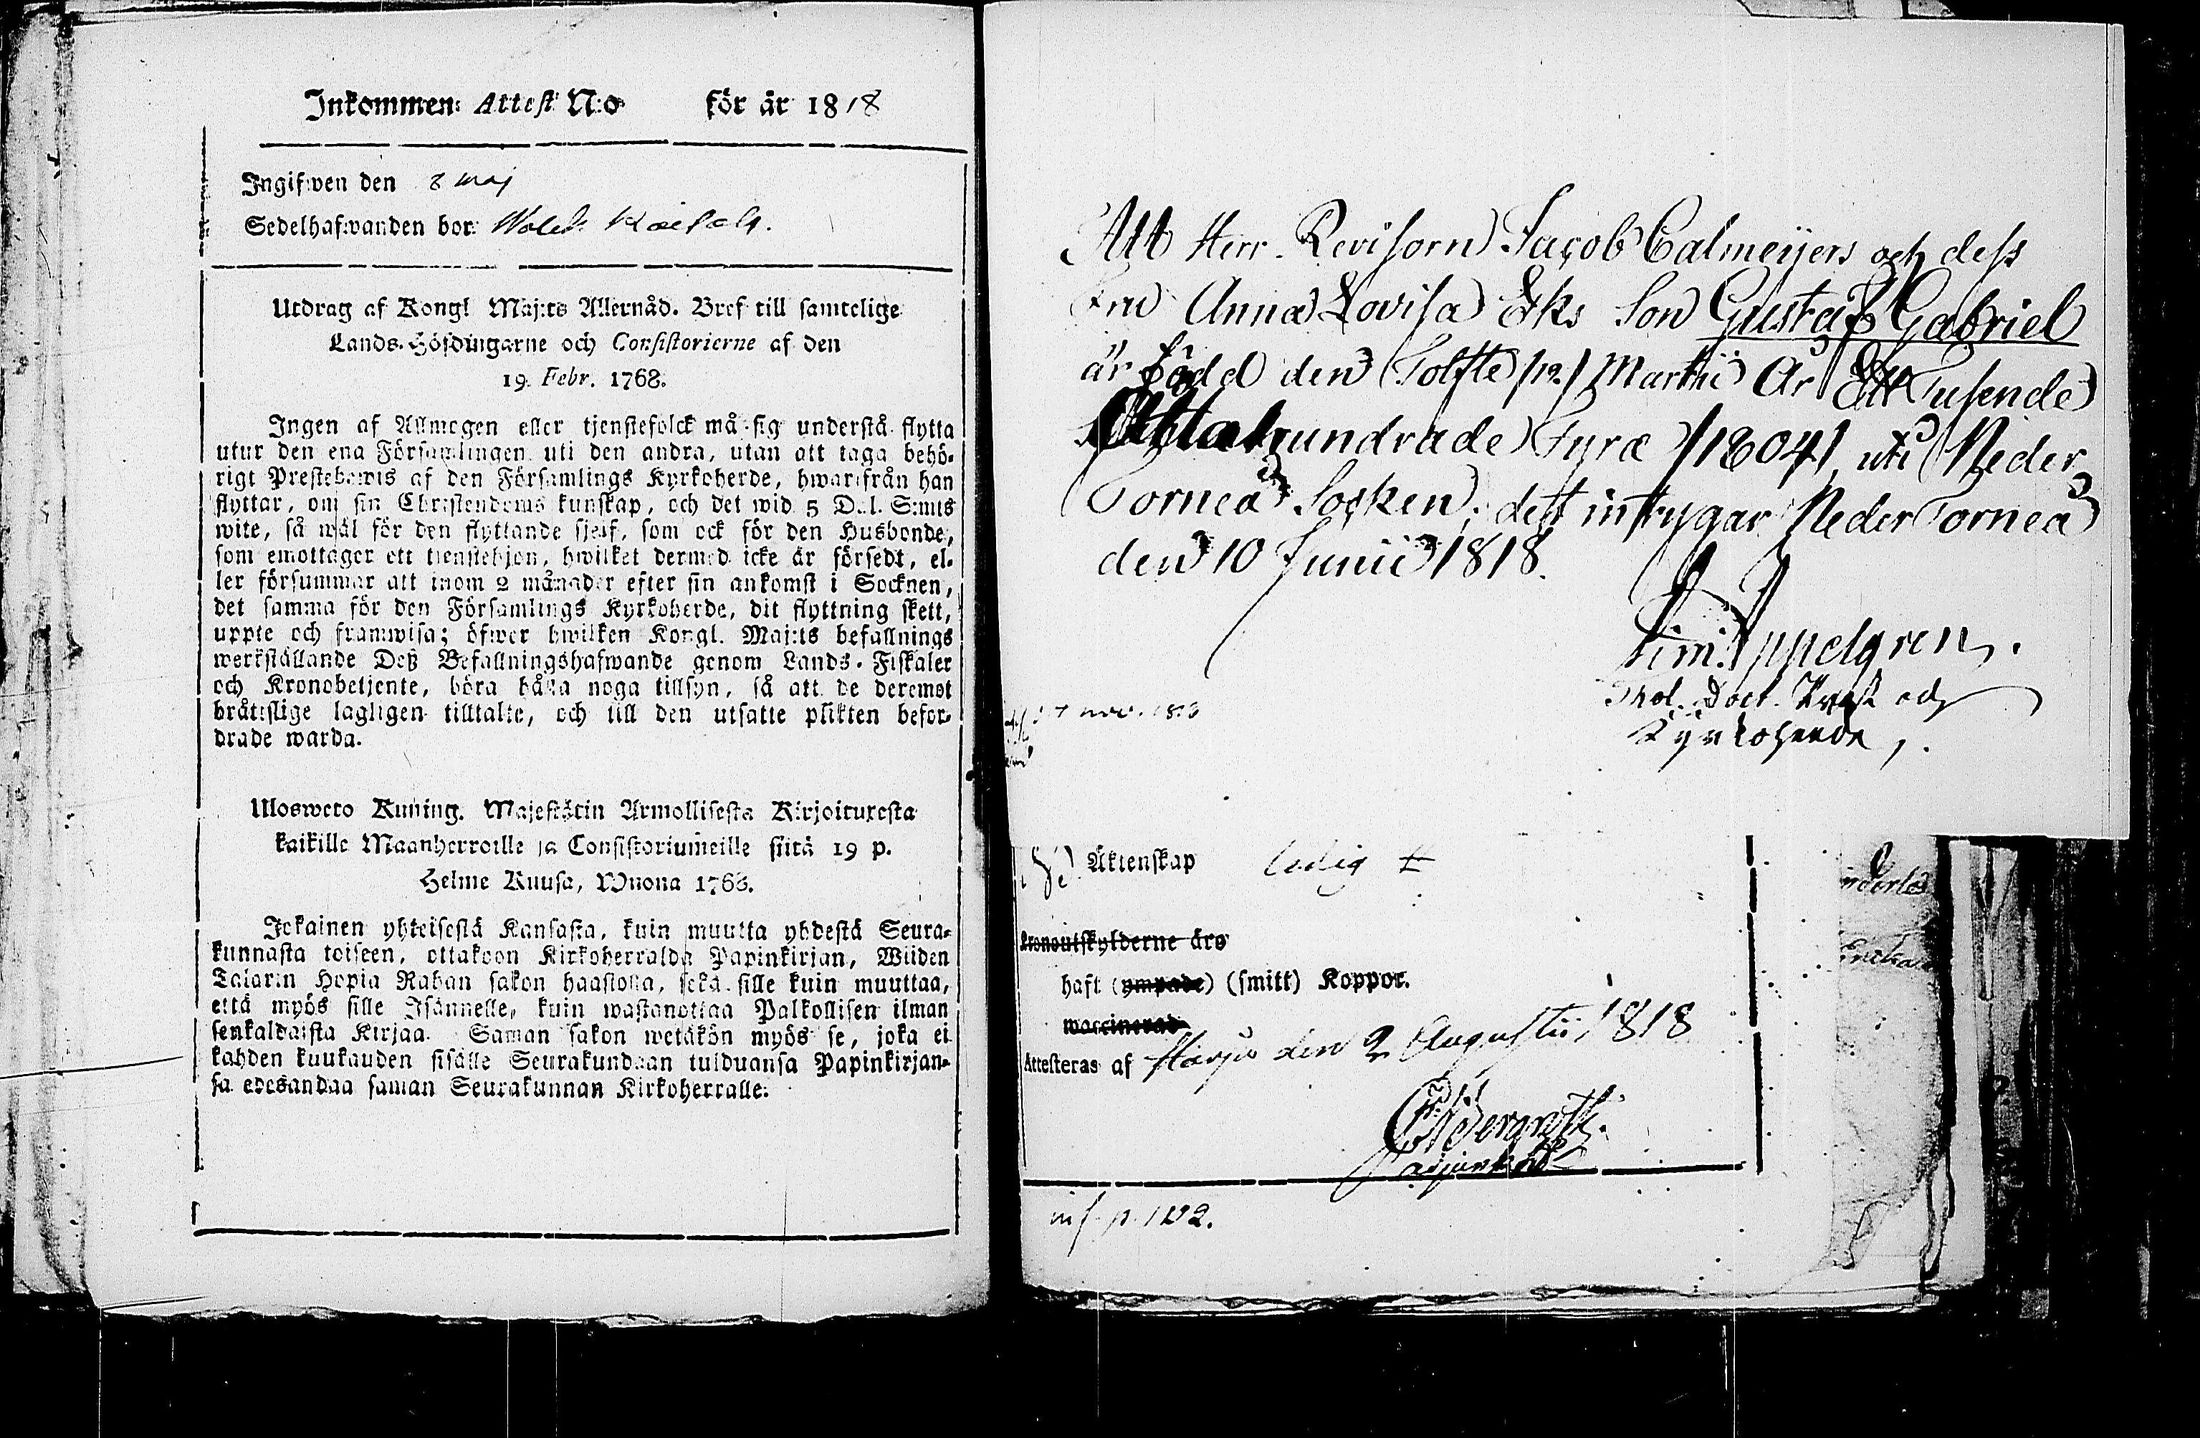 Inkommen: Attest N:o för år 1818
Ingifwen den 8 maj
Sedelhafwanden bor:
Utdrag af Kongl Maj:ts Allernåd. Bref till samtelige
Lands-Höfdingarne och Consistorierne af den
19. Febr. 1768.
Ingen af Allmogen eller tjenstefolck må sig understå flytta
utur den ena Församlingen uti den andra, utan att taga behö-
rigt Prestebewis af den Församlings Kyrkoherde, hwarifrån han
flyttar, om sin Christendoms kunskap, och det wid 5 Dal. S:mts
wite, så wäl för den flyttande sjelf, som ock för den Husbonde,
som emottager ett tienstehjon, hwilket dermed icke är försedt, el-
ler försummar att inom 2 månader efter sin ankomst i Socknen,
det samma för den Församlings Kyrkoherde, dit flyttning skett,
uppte och framwisa; öfwer hwilken Kongl. Maj:ts befallnings
werkställande Deß Befallningshafwande genom Lands-Fiskaler
och Kronobetjente, böra hålla noga tillsyn, så att de deremot
bråttslige lagligen tilltalte, och till den utsatte plikten befor-
drade warda.
Ulosweto Kuning. Majestätin Armollisesta Kirjoituxesta
kaikille Maanherroille ja Consistoriumeille siitä 19 p.
Helme Kuusa, Wuona 1768.
Jokainen yhteisestä Kansasta, kuin muutta yhdestä Seura-
kunnasta toiseen, ottakoon Kirkoherralda Papinkirjan, Wiiden
Talarin Hopia Rahan sakon haastolla, sekä sille kuin muuttaa,
että myös sille Isännelle, kuin wastanottaa Palkollisen ilman
senkaldaista Kirjaa. Saman sakon wetäkön myös se, joka ei
kahden kuukauden sisälle Seurakundaan tulduansa Papinkirjan-
sa edesandaa saman Seurakunnan Kirkoherralle.
Att Herr Revisorn Jacob Calmeijers och dess
Fru Anna Lovisa Eks Son Gustaf Gabriel
är född den Tolfte /12./ Martii År Ett Tusende
Åttahundrade Fyra /1804/ uti Neder
Torneå Socken; dett intygar Neder Torneå
den 10 Junii 1818.
Sim: Appelgren.
Theol. Doct. Prost och
Kyrkoherde.
7 nov. 1803
Äktenskap ledig
Kronoutskylderne äro
haft (ympade) (smitt) Koppor.
waccinerad
Attesteras af Harju den 2 Augustii 1818
inf. p. 122.